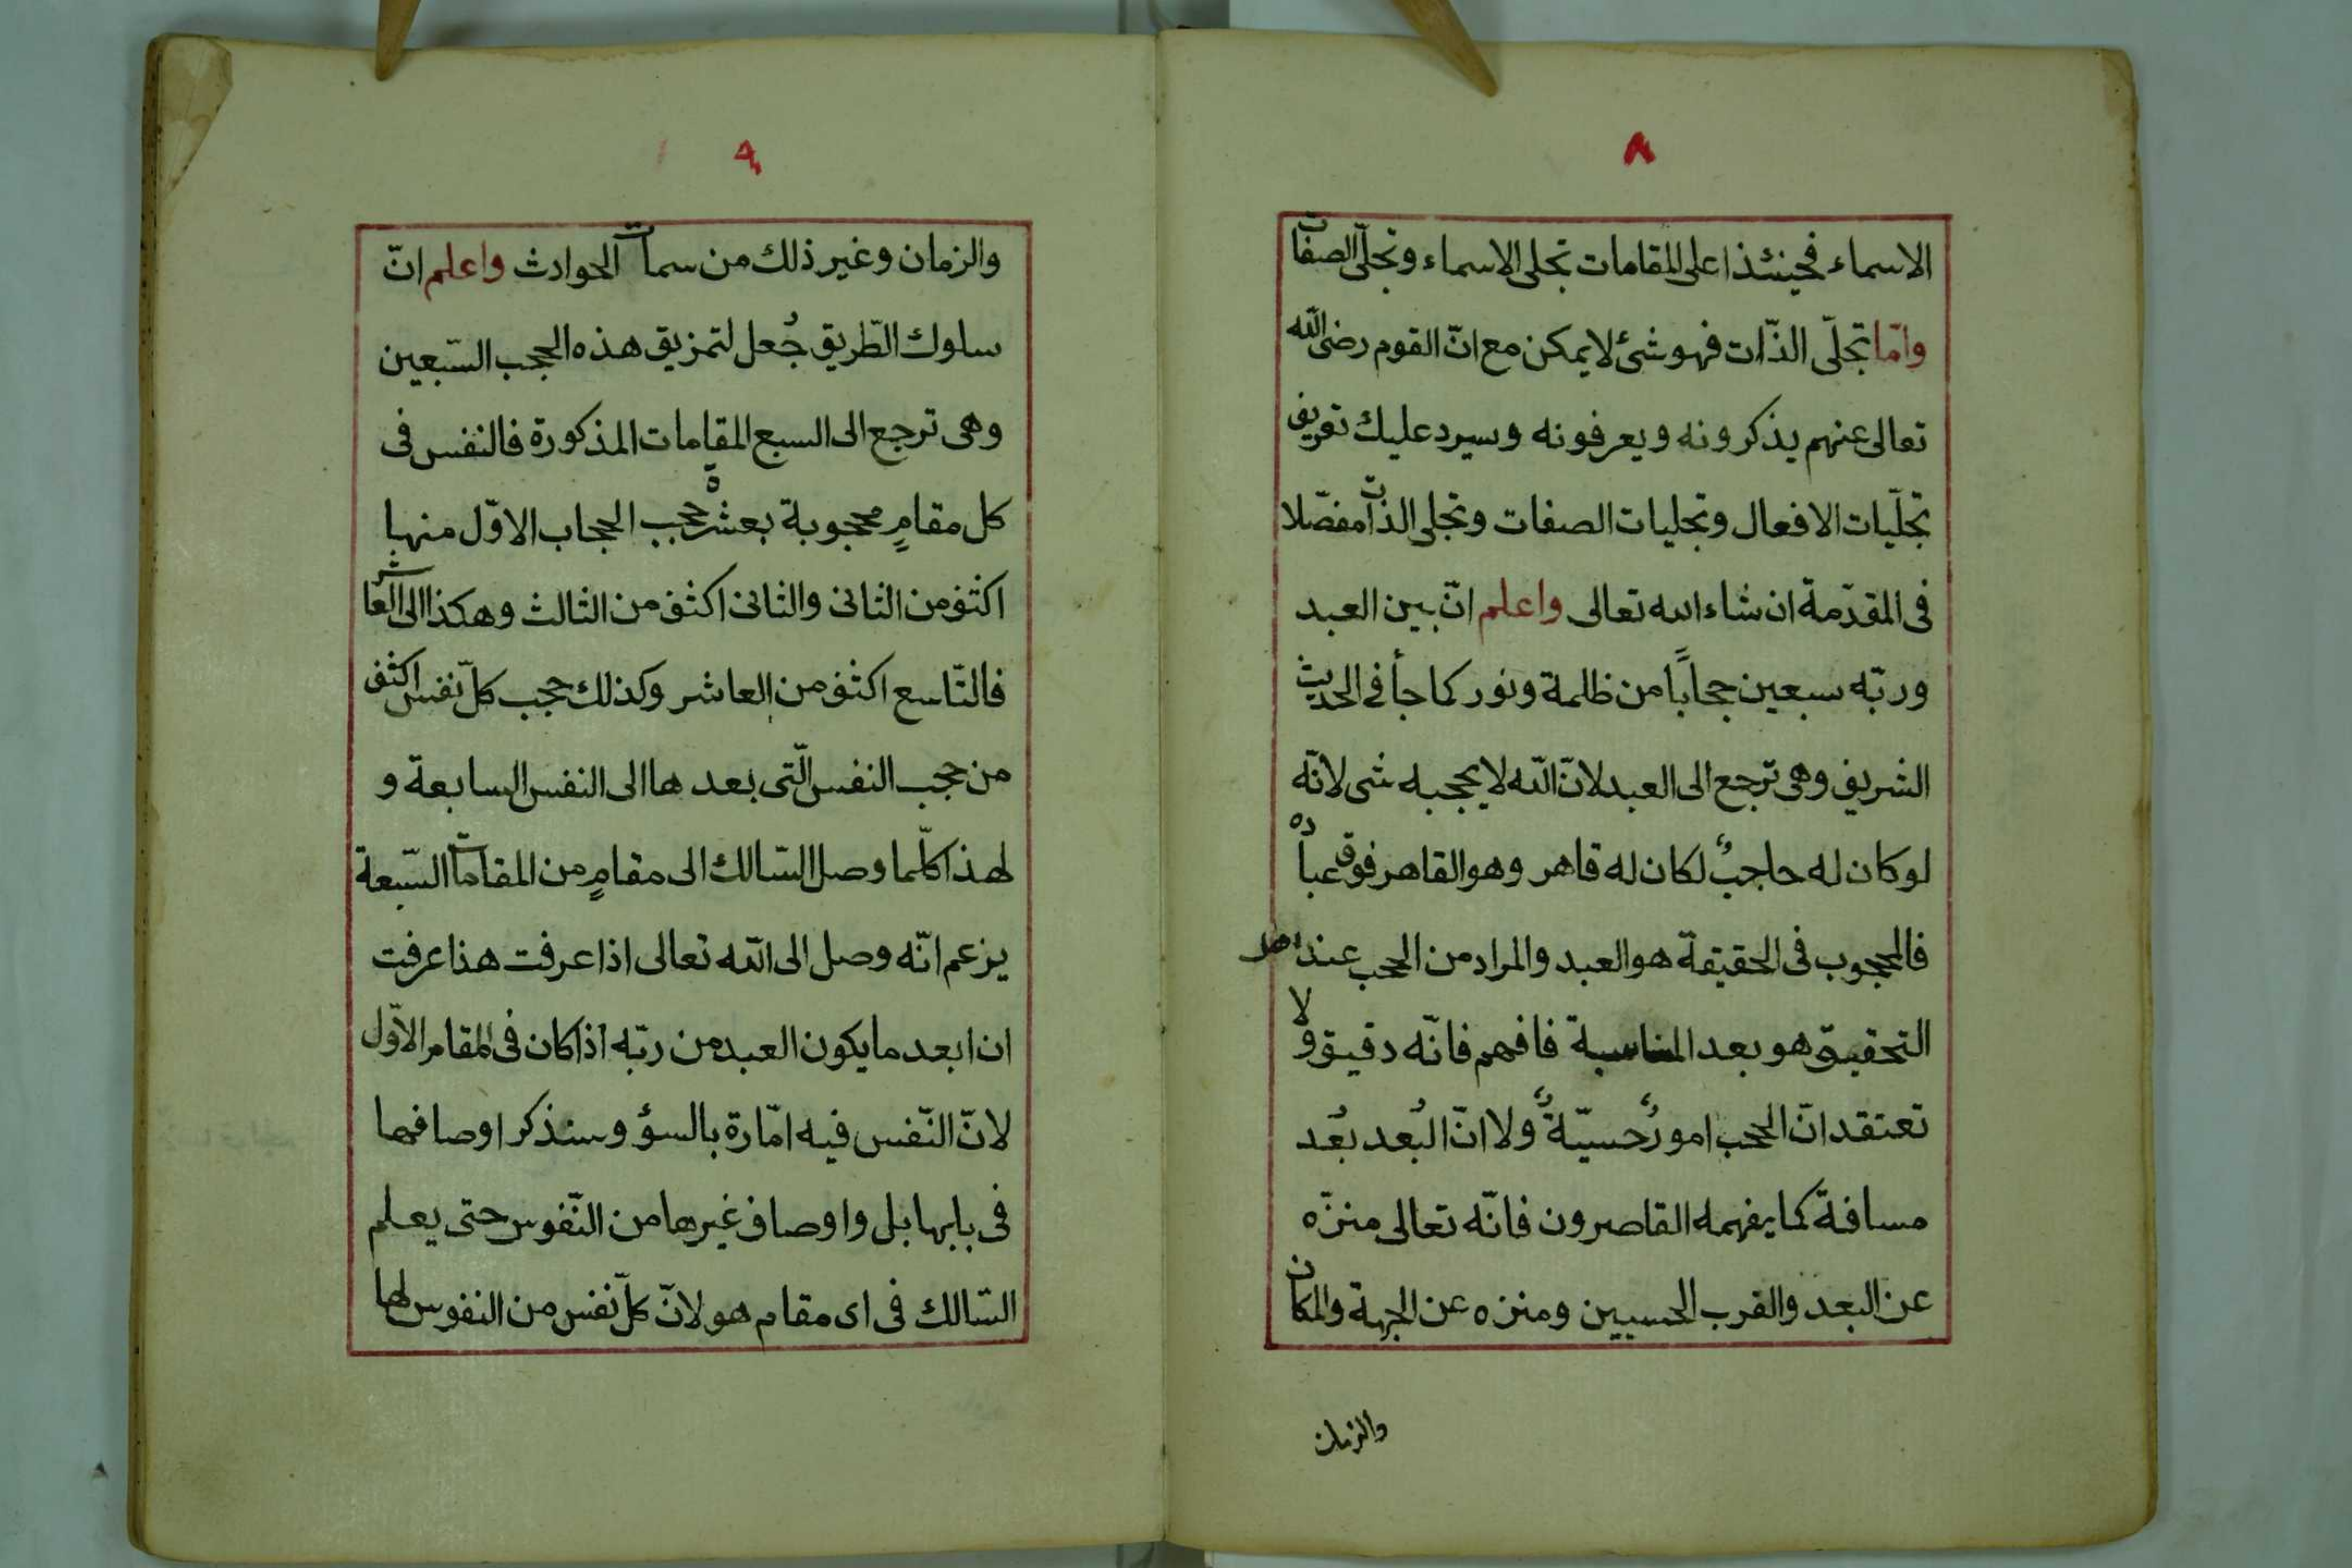 ٨
الاسماء فحينئذ اعلى المقامات تجلى الاسماء وتجلّى الصفات
وامّا تجلّى الذّات فهو شئ لا يمكن مع انّ القوم رضى الله
تعالى عنهم يذكرونه ويعرفونه وسيرد عليك تعريف
تجلّيات الافعال وتجليات الصفات وتجلى الذات مفصّلا
فى المقدّمة ان شاء الله تعالى واعلم انّ بين العبد
وربّه سبعين حجاباً من ظلمة ونور كما جأ فى الحديث
الشريف وهى ترجع الى العبد لانّ الله لا يحجبه شى لانّه
لو كان له حاجبٌ لكان له قاهر وهو القاهر فوق عباده
فالمحجوب فى الحقيقة هو العبد والمراد من الحجب عند اهل
التحقيق هو بعد المناسبة فافهم فانّه دقيق ولا
تعتقد انّ الحجب امورٌ حسيّةٌ ولا انّ البُعد بُعد
مسافة كما يفهمه القاصرون فانّه تعالى منزّه
عن البعد والقرب الحسيين ومنزه عن الجهة والمكان
والزمان
٩
والزمان وغير ذلك من سمات الحوادث واعلم انّ
سلوك الطّريق جُعل لتمزيق هذه الحجب السّبعين
وهى ترجع الى السبع المقامات المذكورة فالنفس فى
كل مقامٍ محجوبة بعشرة حجب الحجاب الاوّل منها
اكثف من الثانى والثانى اكثف من الثالث وهكذا الى العاشر
فالتّاسع اكثف من العاشر وكذلك حجب كلّ نفس اكثف
من حجب النفس الّتى بعدها الى النفس السابعة و
لهذا كلّما وصل السّالك الى مقامٍ من المقامات السّبعة
يزعم انّه وصل الى الله تعالى اذا عرفت هذا عرفت
ان ابعد ما يكون العبد من ربّه اذا كان فى المقام الاوّل
لانّ النّفس فيه امّارة بالسؤ وسنذكر اوصافها
فى بابها بل واوصاف غيرها من النّفوس حتى يعلم
السّالك فى اى مقام هو لانّ كلّ نفس من النفوس لها